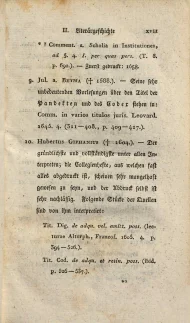 II. Literärgeschichte XVII
* 3 Comment. s. Scholia in Institutionen,
ad §. 4. I. per quas pers. (T. 8.
p. 892.). — Zuerst gedruckt: 1698.
9. Jul. a. Beyma († 1688.). — Seine sehr
unbedeutenden Vorlesungen über den Titel der
Pandekten und des Codex stehen in:
Comm. in varios titulos juris. Leovard.
1645. 4. (321—408., p. 409—427.).
10. Hubertus Giphanius († 1604.). — Der
gründlichste und vollständigste unter allen In-
terpreten; die Collegienhefte, aus welchen fast
alles abgedruckt ist, scheinen sehr mangelhaft
gewesen zu seyn, und der Abdruck selbst ist
sehr nachlässig. Folgende Stücke der Quellen
sind von ihm interpretirt:
Tit. Dig. de adqu. vel. amitt. poss. (lec-
turae Altorph., Francof. 1605. 4. p.
394—526.).
Tit. Cod. de adqu. et retin. poss. (Ibid.
p. 526—557.).